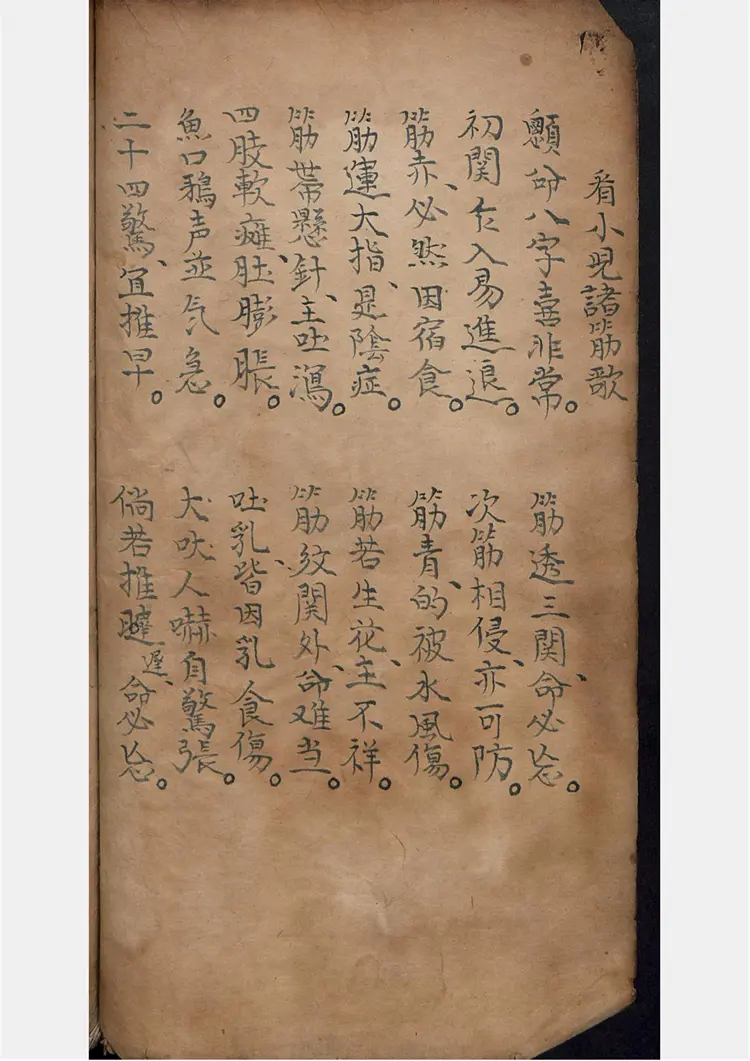 看小児諸筋歌
顖命八字喜非常。筋透三関、命必忘。
初関乍入易進退。次筋相侵、亦可防。
筋赤、必然因宿食。筋青、的被水風傷。
筋連大指、是陰症。筋若生花、主不祥。
筋帯懸針、主吐瀉。筋紋関外、命难当。
四肢軟癱、肚膨脹。吐乳、皆因乳食傷。
魚口鴉声並气急。大吠人嚇自驚張。
二十四驚、宜推早。倘若推遲、命必忘。